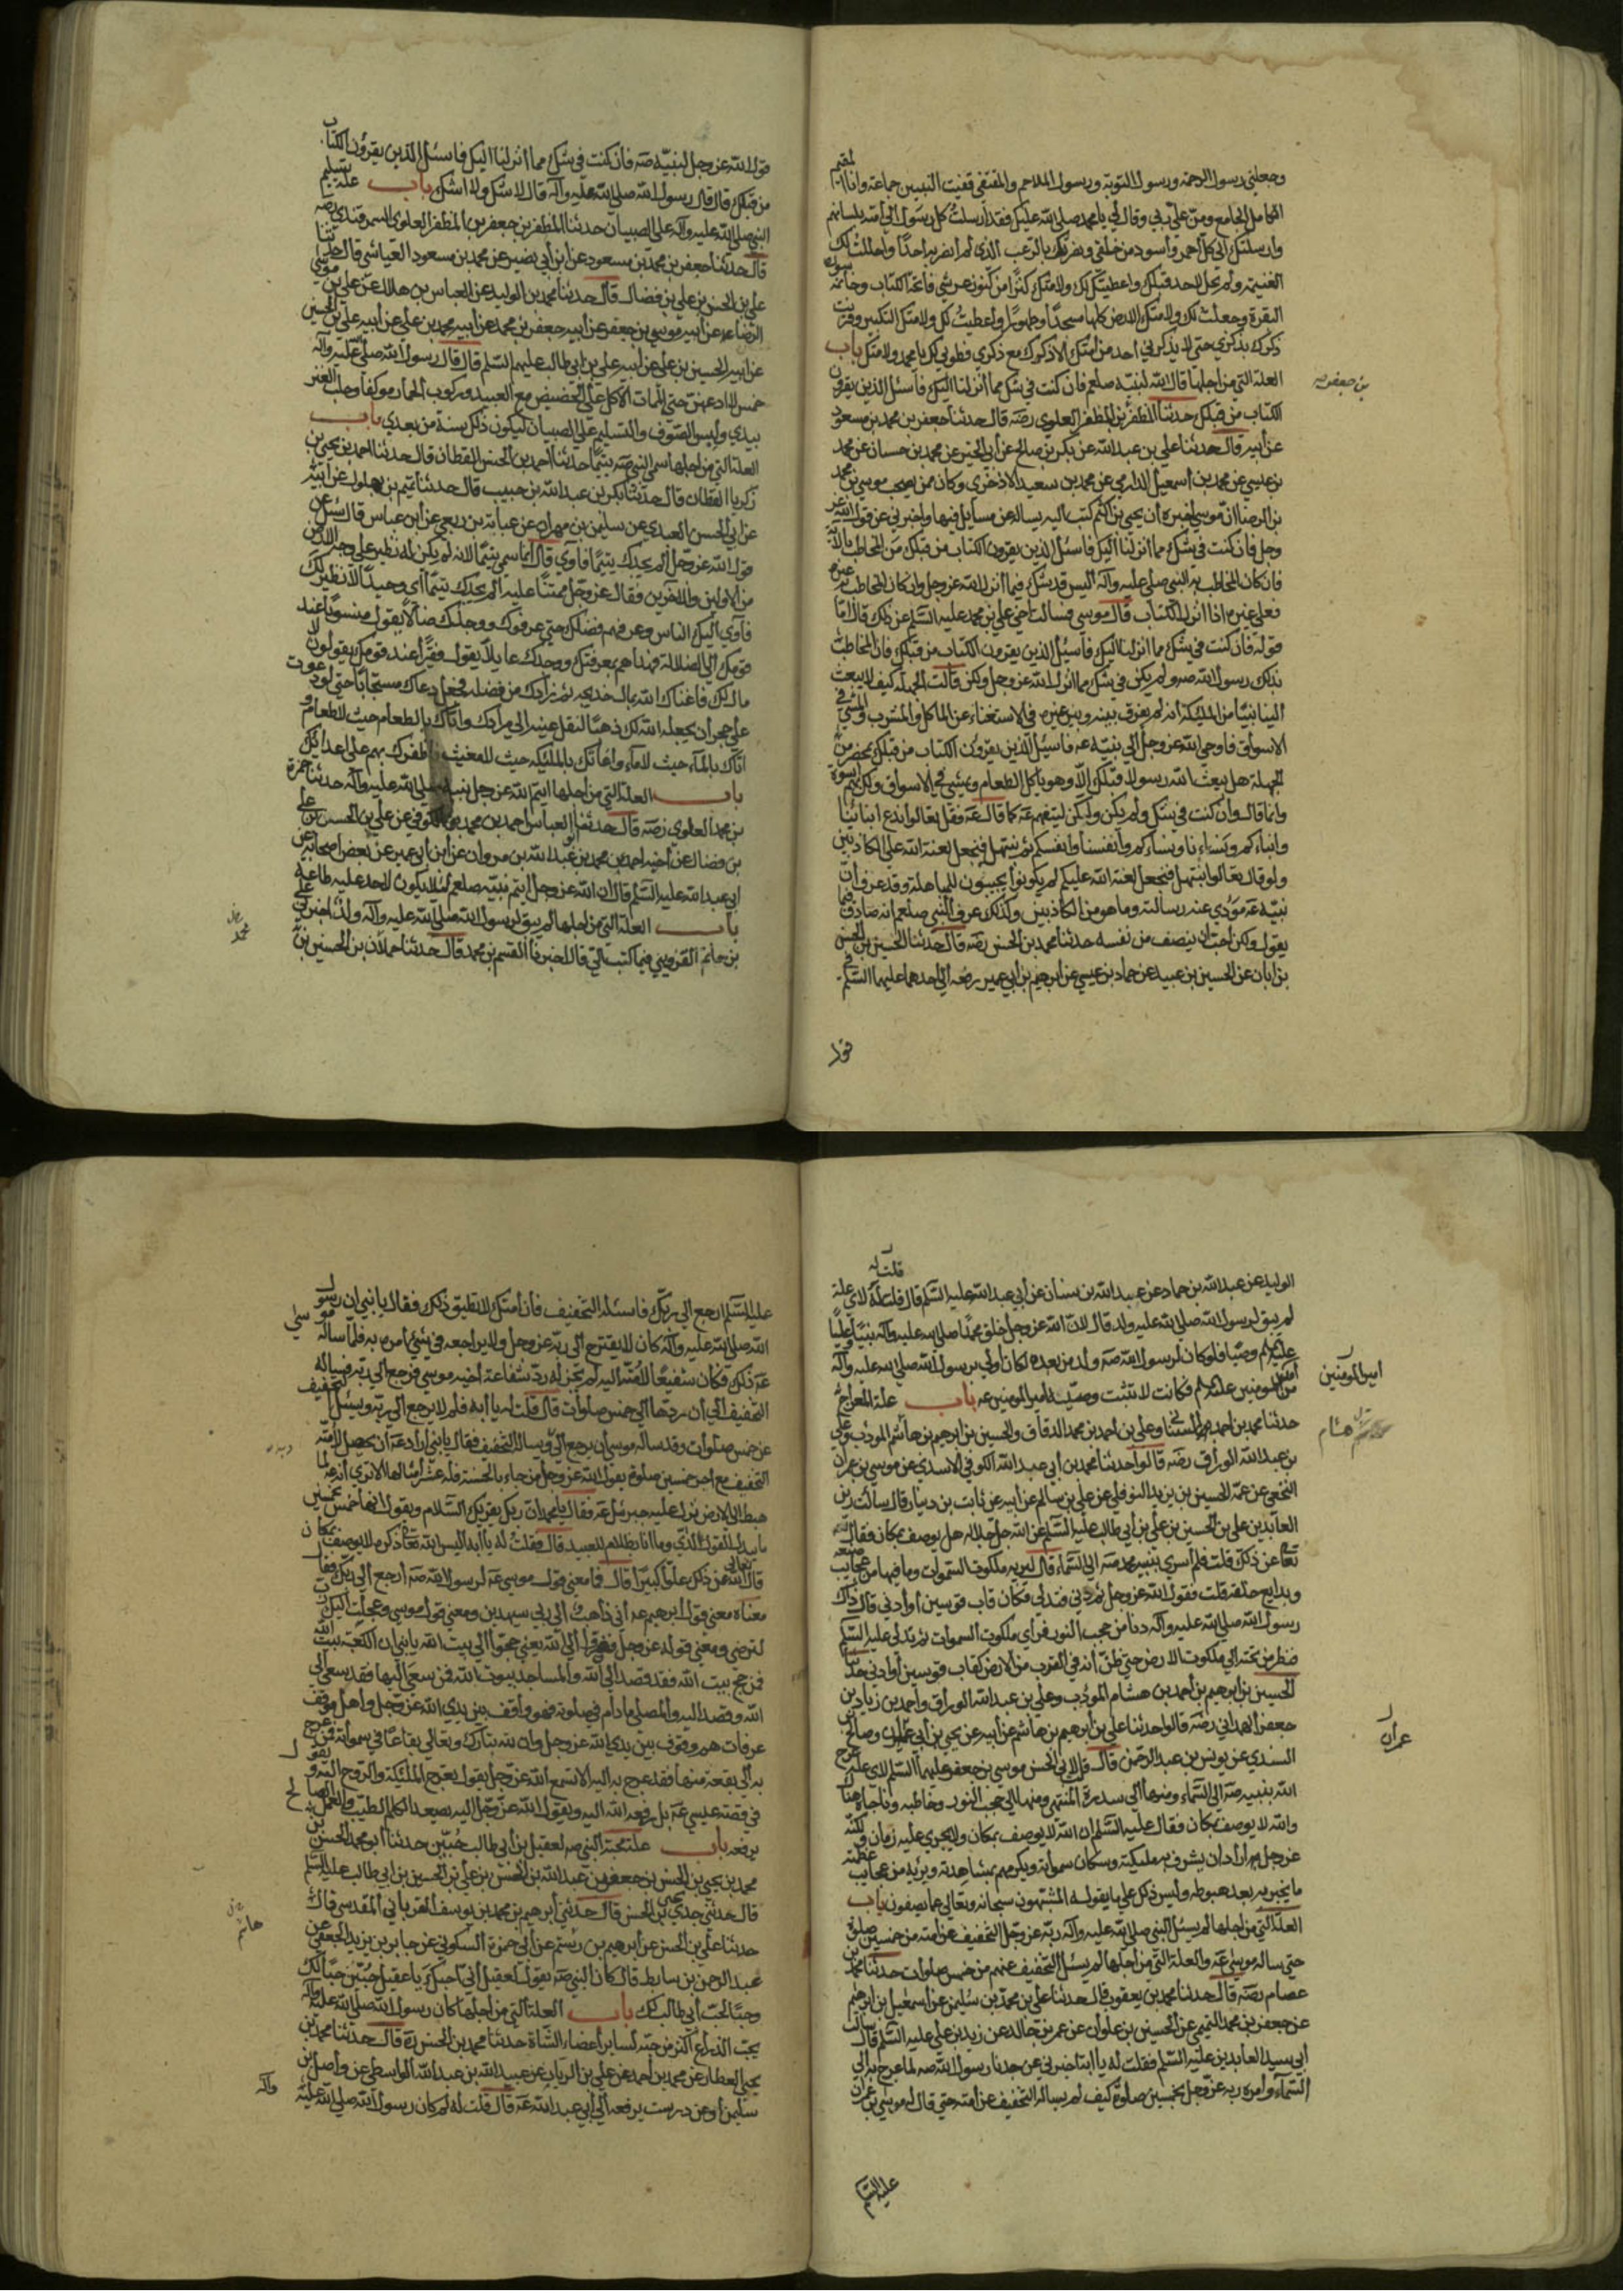 وجعلني رسول الرحمة ورسول التوبة ورسول الملاحم والمقتفي قفيت النبيين جماعة وانا المقيم
الكامل الجامع ومن علي ربي وقال لي يا محمد صلى الله عليك فقد أرسلت كل رسول الى أمته بلسانهم
وارسلتك الى كل أحمر واسود من خلقي ونصرتك بالرعب الذي لم أنصر به احدًا واحللت لك
الغنيمة ولم تحل لاحد قبلك واعطيتك لك ولامتك كنزًا من كنوز عرشي فاتحة الكتاب وخاتمة سورة
البقرة وجعلت لك ولامتك الارض كلها مسجدًا وطهورًا وأعطيت لك ولامتك التكبير وقرنت
ذكرك بذكري حتى لا يذكرني أحد من أمتك الا ذكرك مع ذكري فطوبى لك يا محمد ولامتك باب
العلة التي من اجلها قال الله لنبيه صلعم فان كنت في شك مما أنزلنا اليك فاسئل الذين يقرؤن
بن جعفر
الكتاب من قبلك حدثنا المظفر بن المظفر العلوي رضه قال حدثنا جعفر بن محمد بن مسعود
عن أبيه قال حدثنا علي بن عبد الله عن بكر بن صالح عن أبي الخير عن محمد بن حسان عن محمد
بن عيسى عن محمد بن أسمعيل الدارمي عن محمد بن سعيد الاذخري وكان ممن يصحب موسى بن محمد
بن الرضا ان موسى أخبره أن يحيى بن اكثم كتب اليه يساله عن مسايل فيها واخبرني عن قول الله عز
وجل فان كنت في شك مما أنزلنا اليك فاسئل الذين يقرؤن الكتاب من قبلك من المخاطب بالآية
فان كان المخاطب به النبي صلى عليه وآله أليس قد شك فيما أنزل الله عز وجل وان كان المخاطب به غيره
فعلى غيره اذا انزل الكتاب قال موسى فسالت اخي علي بن محمد عليه السلم عن ذلك قال اما
قوله فان كنت في شك مما انزلنا اليك فاسئل الذين يقرون الكتاب من قبلك فان المخاطب
بذلك رسول الله صه ولم يكن في شك مما انزل الله عز وجل ولكن قالت الجهلة كيف لا يبعث
الينا نبيًا من الملئكة انه لم يفرق بينه وبين غيره في الاستغناء عن الماكل والمشرب والمشي في
الاسواق فاوحى الله عز وجل الى نبيه عه فاسئل الذين يقرؤن الكتاب من قبلك بمحضر من
الجهلة هل يبعث الله رسولا قبلك إلا وهو ياكل الطعام ويمشي في الاسواق ولك بهم اسوة
وانما قال وان كنت في شك ولم يكن ولكن ليتفهم عه كما قال عه فقل تعالوا ندع ابنائنا
وابناءكم ونساءنا ونساءكم وأنفسنا وانفسكم ثم نبتهل فنجعل لعنة الله على الكاذبين
ولو قال تعالوا نبتهل فنجعل لعنة الله عليكم لم يكونوا يجيبون للمباهلة وقد عرف ان
نبيه عه مؤدي عنه رسالته وما هو من الكاذبين وكذلك عرف النبي صلعم انه صادق فيما
يقول ولكن احب ان ينصف من نفسه حدثنا محمد بن الحسن رضه قال حدثنا الحسين بن الحسن
بن ابان عن الحسين بن سعيد عن حماد بن عيسى عن ابرهيم بن أبي عمير رفعه الى احدهما عليهما السلم في
قول
قول الله عز وجل لنبيه صه فان كنت في شك مما أنزلنا اليك فاسئل الذين يقرؤن الكتاب
من قبلك قال قال رسول الله صلى الله عليه وآله قال لا شك ولا اشك باب علة تسليم
النبي صلى الله عليه وآله على الصبيان حدثنا المظفر بن جعفر بن المظفر العلوي السمرقندي رضه
قال حدثنا جعفر بن محمد بن مسعود عن ابن أبي نضير عن محمد بن مسعود العياشي قال حدثنا
علي بن الحسن بن علي بن فضال قال حدثنا محمد بن الوليد عن العباس بن هلال عن علي بن موسى
الرضا عه عن أبيه موسى بن جعفر عن أبيه جعفر بن محمد عن أبيه محمد بن علي عن أبيه علي بن الحسين
عن أبيه الحسين بن علي عن أبيه علي بن ابي طالب عليهم السلم قال قال رسول الله صلى الله عليه وآله
خمس لا ادعهن حتى الممات الاكل على الحضيض مع العبيد وركوب الحمار موكفا وحلب العنز
بيدي ولبس الصوف والتسليم على الصبيان ليكون ذلك سنة من بعدي باب
العلة التي من اجلها سمي النبي صه يتيمًا حدثنا أحمد بن الحسن القطان قال حدثنا احمد بن يحيى بن
زكريا القطان قال حدثنا بكر بن عبد الله بن حبيب قال حدثنا تميم بن بهلول عن أبيه
عن ابي الحسن العبدي عن سليمن بن مهران عن عباية بن ربعي عن ابن عباس قال سئل عن
قول الله عز وجل ألم يجدك يتيمًا فاوي قال انما سمي يتيمًا لانه لم يكن له نظير على وجه الارض
من الاولين والآخرين فقال عز وجل ممتنًا عليه ألم يجدك يتيمًا أي وحيدًا لا نظير لك
فآوي اليك الناس وعرفهم فضلك حتى عرفوك ووجدك ضالًا يقول منسوبًا عند
قومك الى الضلالة فهداهم بمعرفتك ووجدك عايلًا يقول فقيرًا عند قومك يقولون لا
مال لك فاغناك الله بمال خديجه ثم زادك من فضله فجعل دعاك مستجابًا حتى لو دعوت
على حجر أن يجعله الله لك ذهبًا لنقل عينه الى مرادك واتاك بالطعام حيث لا طعام و
اتاك بالماء حيث لا ماء واغاثك بالملئيكة حيث لا مغيث فاظفرك بهم على اعدائك
باب العلة التي من اجلها ايتم الله عز وجل نبيه صلى الله عليه وآله حدثنا حمزة
بن محمد العلوي رضه قال حدثنا ابو العباس احمد بن محمد الكوفي عن علي بن الحسن بن علي
بن فضال عن أخيه احمد بن محمد بن عبد الله بن مروان عن أبن أبي عمير عن بعض اصحابه عن
ابي عبد الله عليه السلم قال ان الله عز وجل ايتم نبيه صلعم لئلا يكون لاحد عليه طاعة
باب العلة التي من اجلها لم يبق لرسول الله صلى الله عليه وآله ولد اخبرني علي
محمد
بن حاتم القزويني فيما كتب الي قال اخبرنا القسم بن محمد قال حدثنا حمدان بن الحسين بن
قلت له
الوليد عن عبد الله بن حماد عن عبد الله بن سنان عن أبي عبد الله عليه السلم قال قلت له لاي علة
لم يبق لرسول الله صلى الله عليه ولد قال لان الله عز وجل خلق محمدًا صلى الله عليه وآله نبيًا وعليًا
عليه السلم وصيًا فلو كان لرسول الله صه ولد من بعده لكان أولى برسول الله صلى الله عليه وآله
امير المومنين
من امير المومنين عليه السلم فكانت لا تثبت وصية امير المومنين عه باب علة المعراج
هشام
حدثنا محمد بن احمد السناني وعلي بن احمد بن محمد الدقاق والحسين بن ابرهيم بن هاشم المودب وعلي
بن عبد الله الوراق رضه قالوا حدثنا محمد بن أبي عبد الله الكوفي الاسدي عن موسى بن عمران
النخعي عن عمه الحسين بن يزيد النوفلي عن علي بن سالم عن أبيه عن ثابت بن دينار قال سالت زين
العابدين علي بن الحسين بن علي بن أبي طالب عليه السلم عن الله جل جلاله هل يوصف بمكان فقال
تعالى عن ذلك قلت فلم أسري بنبيه محمد صه الى السماء قال ليريه ملكوت السموات وما فيها من عجايب صنعه
وبدايع خلقه قلت فقول الله عز وجل ثم دني فتدلى فكان قاب قوسين أو أدنى قال ذاك
رسول الله صلى الله عليه وآله دنا من حجب النور فرأي ملكوت السموات ثم تدلى عليه السلم
فنظر من تحته الى ملكوت الارض حتى ظن أنه في القرب من الارض كقاب قوسين أو ادنى حدثنا
الحسين بن ابرهيم بن أحمد بن هشام المودب وعلي بن عبد الله الوراق واحمد بن زياد بن
جعفر الهمداني رضه قالوا حدثنا علي بن أبرهيم بن هاشم عن أبيه عن يحيى بن أبي عمران وصالح بن
عمران
السندي عن يونس بن عبد الرحمن قال قلت لابي الحسن موسى بن جعفر عليهما السلم لاي علة عرج
الله بنبيه صه الى السماء ومنها الى سدرة المنتهى ومنها الى حجب النور وخاطبه وناجاه هناك
والله لا يوصف بمكان فقال عليه السلم ان الله لا يوصف بمكان ولا يجري عليه زمان ولكنه
عز وجل اراد ان يشرف به ملئيكته وسكان سمواته ويكرمهم بمشاهدته ويريه من عجايب عظمته
ما يخبر به بعد هبوطه وليس ذلك على ما يقوله المشبهون سبحانه وتعالى عما يصفون باب
العلة التي من اجلها لم يسئل النبي صلى الله عليه وآله ربه عز وجل التخفيف عن امته من خمسين صلوة
حتى ساله موسى عه والعلة التي من أجلها لم يسئل التخفيف عنهم من خمس صلوات حدثنا محمد بن
عصام رضه قال حدثنا محمد بن يعقوب قال حدثنا علي بن محمد بن سليمن عن أسمعيل بن ابرهيم
عن جعفر بن محمد التميمي عن الحسين بن علوان عن عمر بن خالد عن زيد بن علي عليه السلم قال سالت
أبي سيد العابدين عليه السلم فقلت له يا ابتا اخبرني عن جدنا رسول الله صه لما عرج به الى
السماء وأمره ربه عز وجل بخمسين صلوة كيف لم يساله التخفيف عن أمته حتى قال له موسى بن عمران
عليه السلم
عليه السلم ارجع الى ربك فاسئله التخفيف فان أمتك لا تطيق ذلك فقال يا بني ان رسول
الله صلى الله عليه وآله كان لا يقترح الى ربه عز وجل ولا يراجعه في شيء يأمره به فلما ساله موسى
عه ذلك فكان شفيعًا لامته اليه لم يجز له رد شفاعة أخيه موسى فرجع الى ربه فساله
التخفيف الى أن ردها الى خمس صلوات قال قلت له يا أبه فلم لا يرجع الى ربه ويسئله التخفيف
عن خمس صلوات وقد ساله موسى أن يرجع الى ربه ويساله التخفيف فقال يا بني أراد عه أن يحصل لامته
التخفيف مع اجر خمسين صلوة يقول الله عز وجل من جاء بالحسنة فله عشر أمثالها الا ترى أنه عه لما
هبط الى الارض نزل عليه جبرئيل عه فقال يا محمد ان ربك يقرئك السلام ويقول انها خمس بخمسين
ما يبدل القول لدي وما انا بظلام للعبيد قال فقلت له يا ابه اليس الله تعالى ذكره لا يوصف بمكان
قال تعالى الله عن ذلك علوًا كبيرًا قال فما معنى قول موسى عه لرسول الله صه أرجع الى ربك فقال
معناه معنى قول ابرهيم عه أني ذاهب الى ربي سيهدين ومعنى قول موسى وعجلت اليك رب
لترضى ومعنى قوله عز وجل ففروا الى الله يعني حجوا الى بيت الله يا بني ان الكعبة بيت الله
فمن حج بيت الله فقد قصد الى الله والمساجد بيوت الله فمن سعى اليها فقد سعى الى
الله وقصد اليه والمصلي ما دام في صلوته فهو واقف بين يدي الله عز وجل وأهل موقف
عرفات هم وقوف بين يدي الله عز وجل وان لله تبارك وتعالى بقاعًا في سمواته فمن عرج
به الى بقعة منها فقد عرج به اليه الا تسمع الله عز وجل يقول تعرج الملئيكة والروح اليه ويقول
في قصة عيسى عه بل رفعه الله اليه ويقول الله عز وجل اليه يصعد الكلم الطيب والعمل الصالح
يرفعه باب علة محبة النبي صه لعقيل بن أبي طالب حبين حدثنا أبو محمد الحسن بن
محمد بن يحيى بن الحسن بن جعفر بن عبد الله بن الحسن بن علي بن الحسين بن ابي طالب عليه السلم
قال حدثني جدي يحيى بن الحسن قال حدثني أبرهيم بن محمد بن يوسف الفريابي المقدسي قال
هاشم
حدثنا علي بن الحسن عن أبرهيم بن رستم عن أبي حمزة السكوني عن جابر بن يزيد الجعفي عن
عبد الرحمن بن سابط قال كان النبي صه يقول لعقيل أني احبك يا عقيل حبين حبًا لك
وحبًا لحب أبي طالب لك باب العلة التي من اجلها كان رسول الله صلى الله عليه وآله
يحب الذراع أكثر من حبه لساير أعضاء الشاة حدثنا محمد بن الحسن ره قال حدثنا محمد بن
يحيى العطار عن محمد بن أحمد عن علي بن الريان عن عبيد الله بن عبد الله الواسطي عن واصل بن
سليمن أو عن درست يرفعه الى أبي عبد الله عه قال قلت له لم كان رسول الله صلى الله عليه
وآله